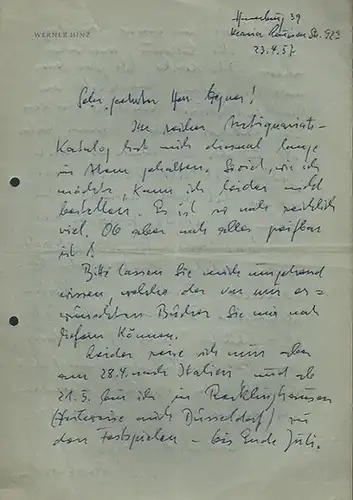 Hamburg 39
WERNER HINZ
23.4.57
Sehr geehrter Herr Wegner!
Ihr reicher Antiquariats-
Katalog hat mich diesmal lange
in Atem gehalten. Soviel, wie ich
möchte, kann ich leider nicht
bestellen. Es ist so reichlich
viel. Ob aber noch alles greifbar
ist?
Bitte lassen Sie mich umgehend
wissen, welche der von mir er=
wünschten Bücher Sie mir noch
liefern können.
Leider reise ich nun aber
am 28.4. nach Italien und ab
21.5. bin ich in Recklinghausen
(zeitweise auch Düsseldorf) zu
den Festspielen – bis Ende Juli.